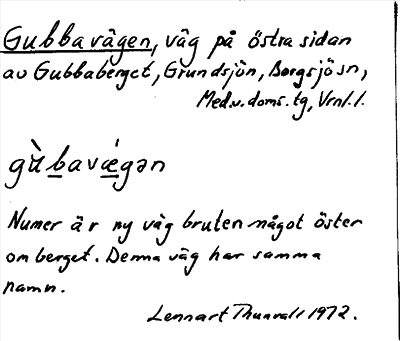 Gubbavägen, väg på östra sidan
av Gubbaberget, Grundsjön, Borgsjö sn,
Med.v. doms. tg, Vrnl. l.
gù̀bavǽgən
Numer är ny väg bruten något öster
om berget. Denna väg har samma
namn.
Lennart Thunvall 1972.